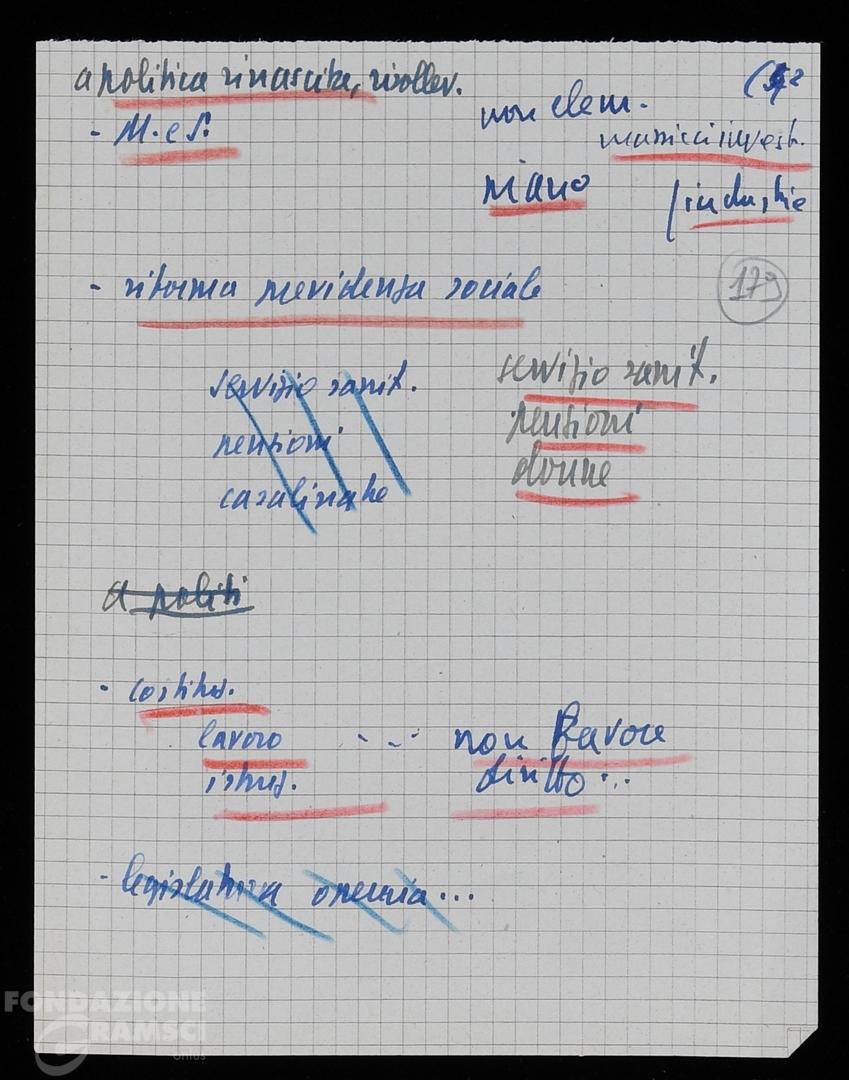 a politica rinascita, risollev.
(52
- M. e S.:
non elem.
massicci invest.
piano
/industrie
- riforma previdenza sociale
179
servizio sanit.
pensioni
casalinghe
servizio sanit.
pensioni
donne
a politi
- costituz.
lavoro ... non favore
istruz. diritto...
- legislatura operaia...
FONDAZIONE
GRAMSCI
onlus